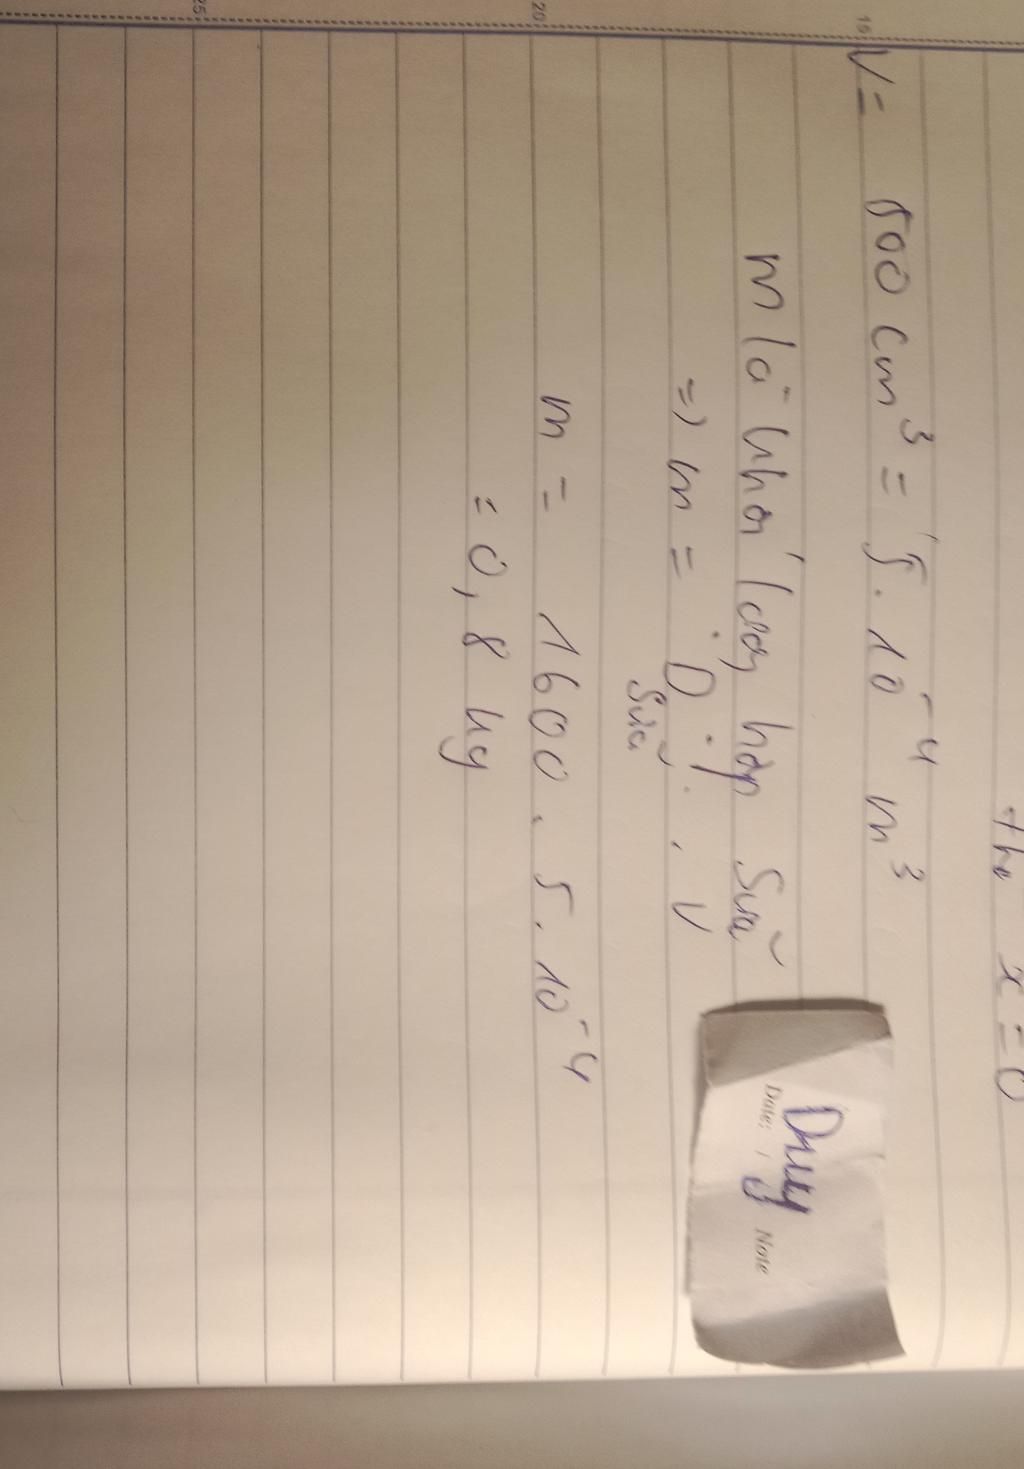 the x = 0
V = 500 cm³ = 5. 10⁻⁴ m³
m là khối lượng hộp sữa
=) m = D sữa . V
m = 1600 . 5. 10⁻⁴
= 0,8 kg
Duy
Date: / Note
15
20
25